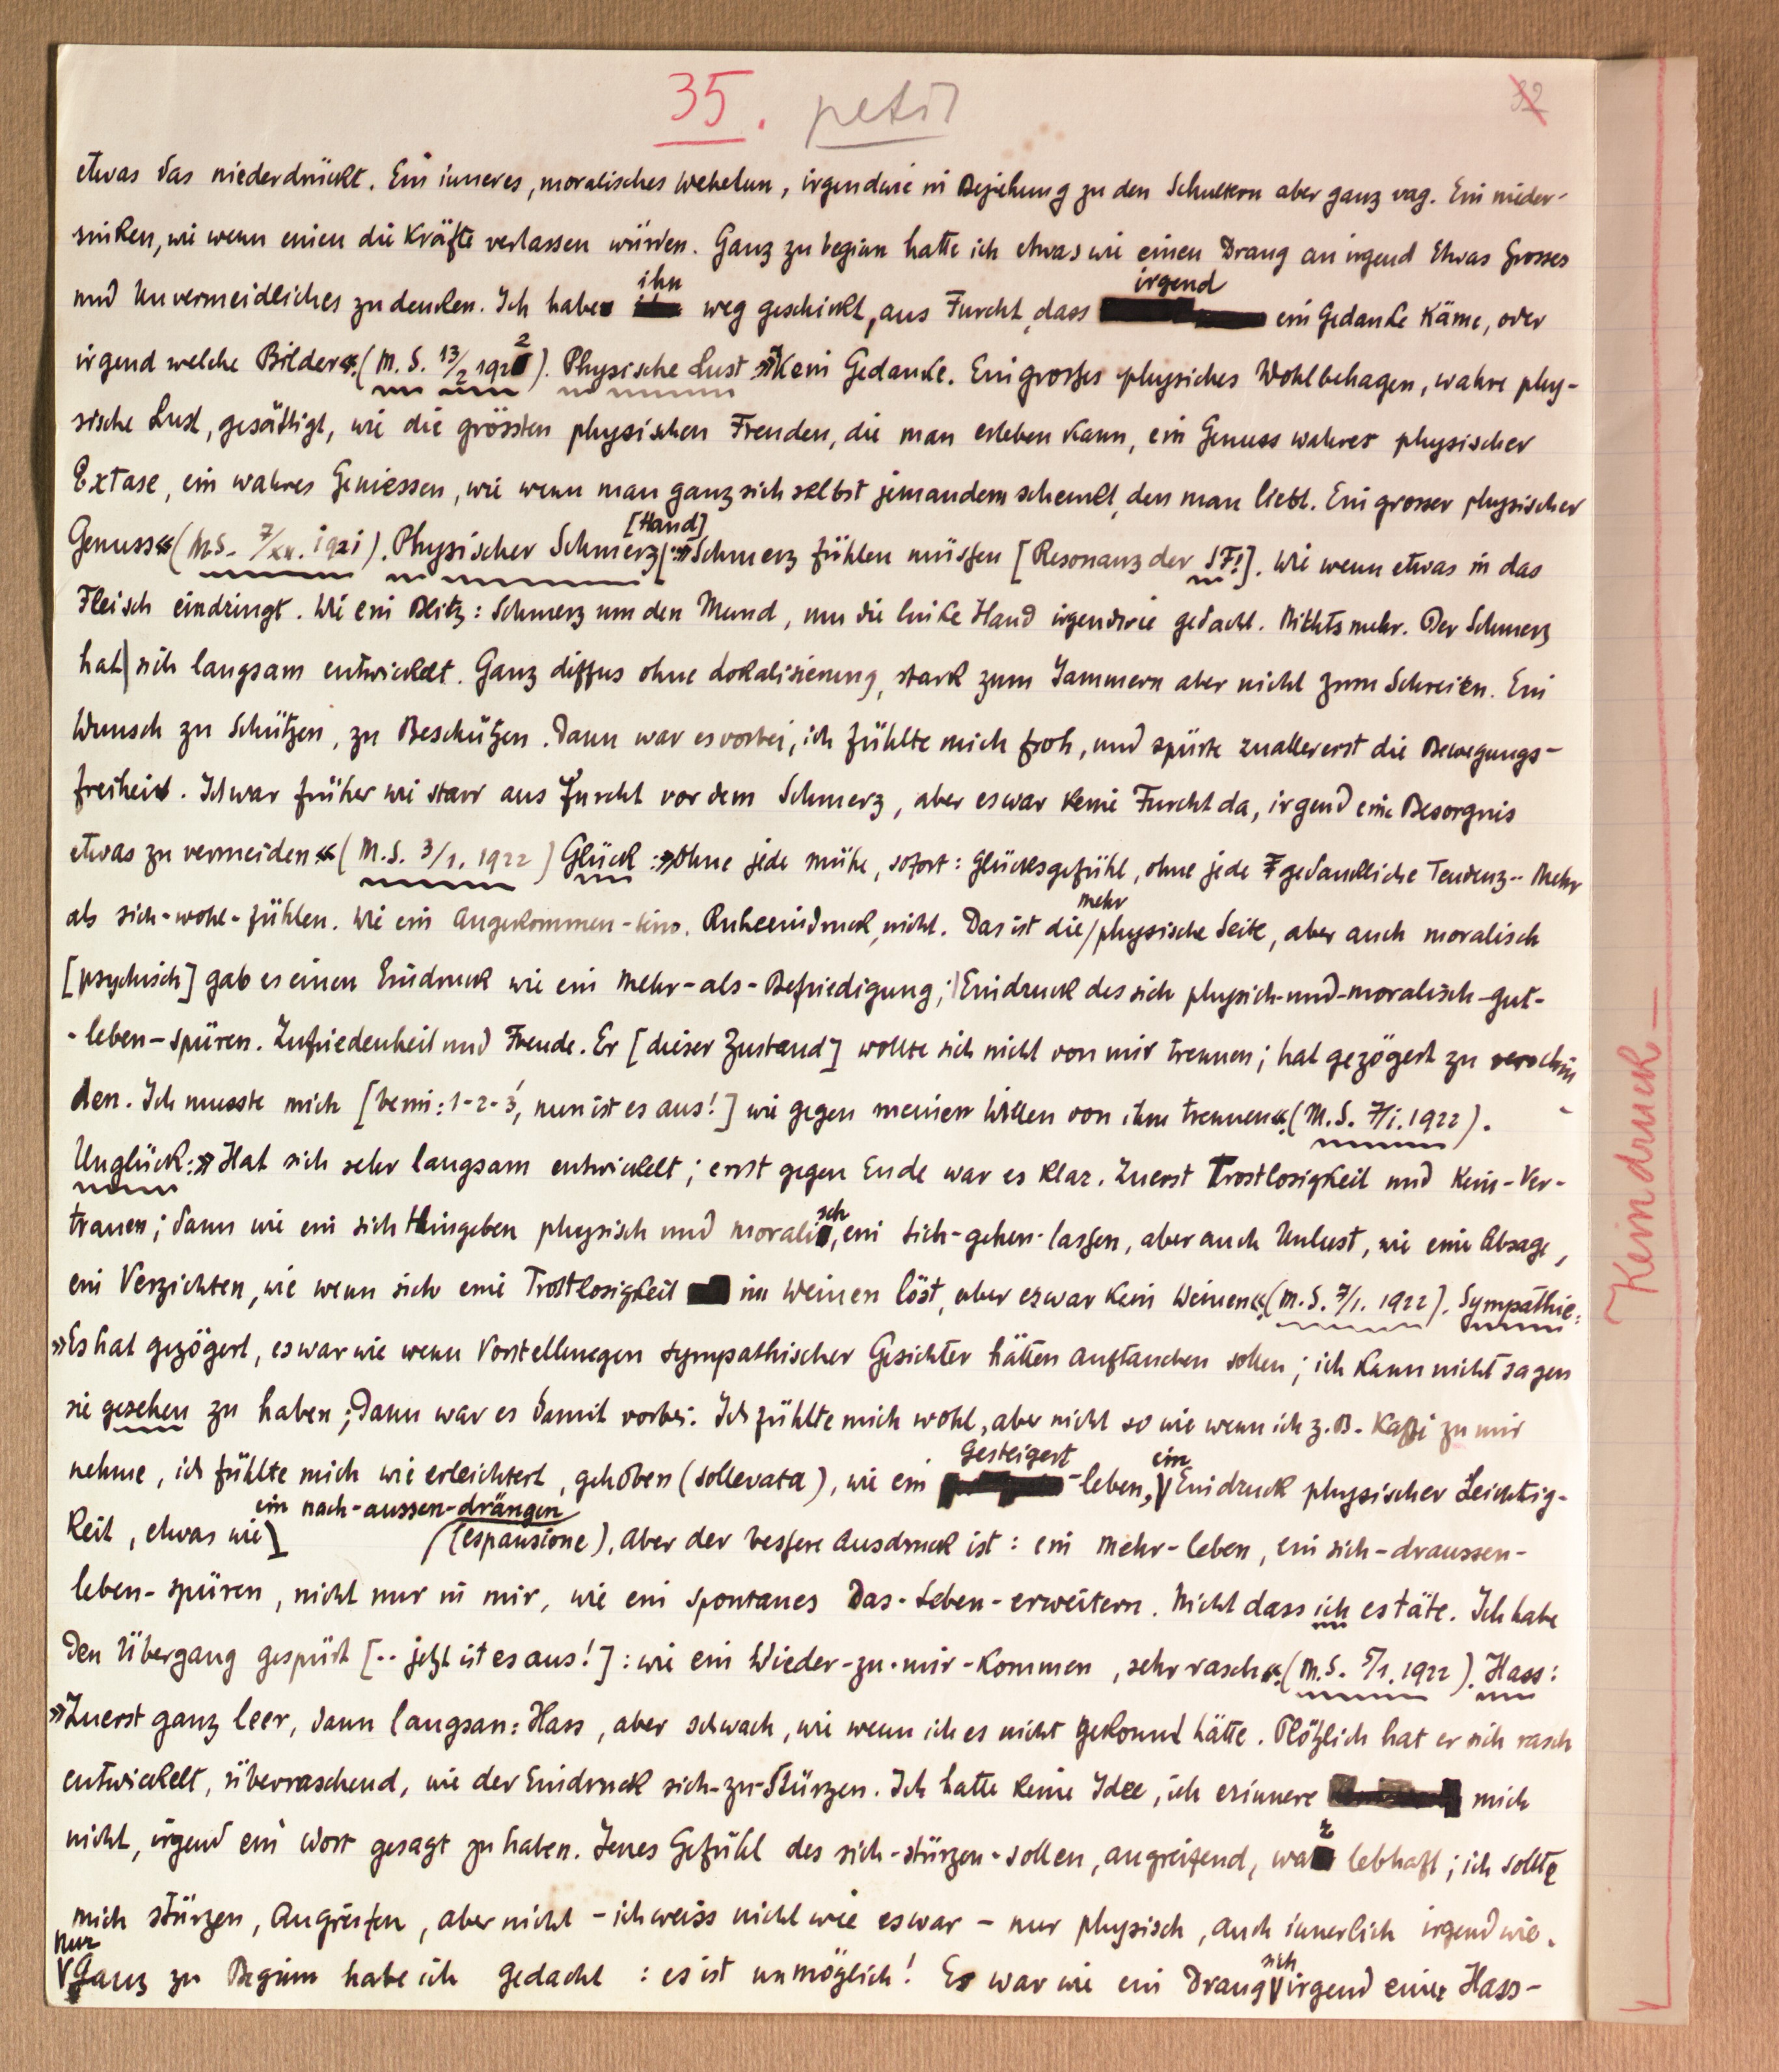 35. petit
32
etwas das niederdrückt. Ein inneres, moralisches Wehetun, irgendwie in Beziehung zu den Schultern aber ganz vag. Ein nieder-
sinken, wie wenn einen die Kräfte verlassen würden. Ganz zu beginn hatte ich etwas wie einen Drang an irgend Etwas Grosses
und Unvermeidliches zu denken. Ich habe ihn weg geschickt, aus Furcht, dass irgend ein Gedanke käme, oder
irgend welche Bilder«.(M.S. 13/2 1922). Physische Lust »Kein Gedanke. Ein grosses physiches Wohlbehagen, wahre phy-
sische Lust, gesättigt, wie die grössten physischen Freuden, die man erleben kann, ein Genuss wahrer physischer
Extase, ein wahres Geniessen, wie wenn man ganz sich selbst jemandem schenkt, den man liebt. Ein grosser physischer
Genuss«(M.S. 7/XII. 1921). Physischer Schmerz [Hand]:»Schmerz fühlen müssen [Resonanz der SF!]. Wie wenn etwas in das
Fleisch eindringt. Wie ein Blitz: Schmerz um den Mund, um die linke Hand irgendwie gedacht. Nichts mehr. Der Schmerz
hat sich langsam entwickelt. Ganz diffus ohne Lokalisierung, stark zum Jammern aber nicht zum Schreien. Ein
Wunsch zu Schützen, zu Beschützen. Dann war es vorbei, ich fühlte mich froh, und spürte zuallererst die Bewegungs-
freiheit. Ich war früher wie starr aus Furcht vor dem Schmerz, aber es war keine Furcht da, irgend eine Besorgnis
etwas zu vermeiden«(M.S. 3/1. 1922) Glück:»Ohne jede mühe, sofort: Glücksgefühl, ohne jede gedankliche Tendenz.. Mehr
als sich-wohl-fühlen. Wie ein Angekommen-sein. Ruheeindruck, nicht. Das ist die mehr physische Seite, aber auch moralisch
[psychisch] gab es einen Eindruck wie ein Mehr-als-Befriedigung; Eindruck des sich physich-und-moralisch-gut-
-leben-spüren. Zufriedenheit und Freude. Er [dieser Zustand] wollte sich nicht von mir trennen; hat gezögert zu verschwin
den. Ich musste mich [beim: 1-2-3, nun ist es aus!] wie gegen meinen Willen von ihm trennen«.(M.S. 7/1. 1922).
Unglück:»Hat sich sehr langsam entwickelt; erst gegen Ende war es klar. Zuerst Trostlosigkeit und Kein-Ver-
trauen; dann wie ein sich Hingeben physisch und moralisch, ein sich-gehen-lassen, aber auch Unlust, wie eine Absage,
ein Verzichten, wie wenn sich eine Trostlosigkeit im Weinen löst, aber es war kein Weinen«.(M.S. 7/1. 1922). Sympathie:
»Es hat gezögert, es war wie wenn Vorstellungen sympathischer Gesichter hätten auftauchen sollen; ich kann nicht sagen
sie gesehen zu haben; dann war es damit vorbei. Ich fühlte mich wohl, aber nicht so wie wenn ich z.B. Kaffe zu mir
nehme, ich fühlte mich wie erleichtert, gehoben (sollevata), wie ein Gesteigert-leben, ein Eindruck physischer Leichtig-
keit, etwas wie ein nach-aussen-drängen (espansione), aber der bessere Ausdruck ist: ein mehr-leben, ein sich-draussen-
leben-spüren, nicht nur in mir, wie ein spontanes Das-Leben-erweitern. Nicht dass ich es täte. Ich habe
den Übergang gespürt [.. jetzt ist es aus!]: wie ein Wieder-zu-mir-kommen, sehr rasch«.(M.S. 5/1. 1922). Hass:
»Zuerst ganz leer, dann langsan: Hass, aber schwach, wie wenn ich es nicht gekonnt hätte. Plötzlich hat er sich rasch
entwickelt, überraschend, wie der Eindruck sich-zu-stürzen. Ich hatte keine Idee, ich erinnere mich
nicht, irgend ein Wort gesagt zu haben. Jenes Gefühl des sich-stürzen-sollen, angreifend, war lebhaft; ich sollte
mich stürzen, Angreifen, aber nicht - ich weiss nicht wie es war - nur physisch, auch innerlich irgendwie.
Nur ganz zu Beginn habe ich gedacht: es ist unmöglich! Es war wie ein Drang sich irgend einer Hass-
Kein druck